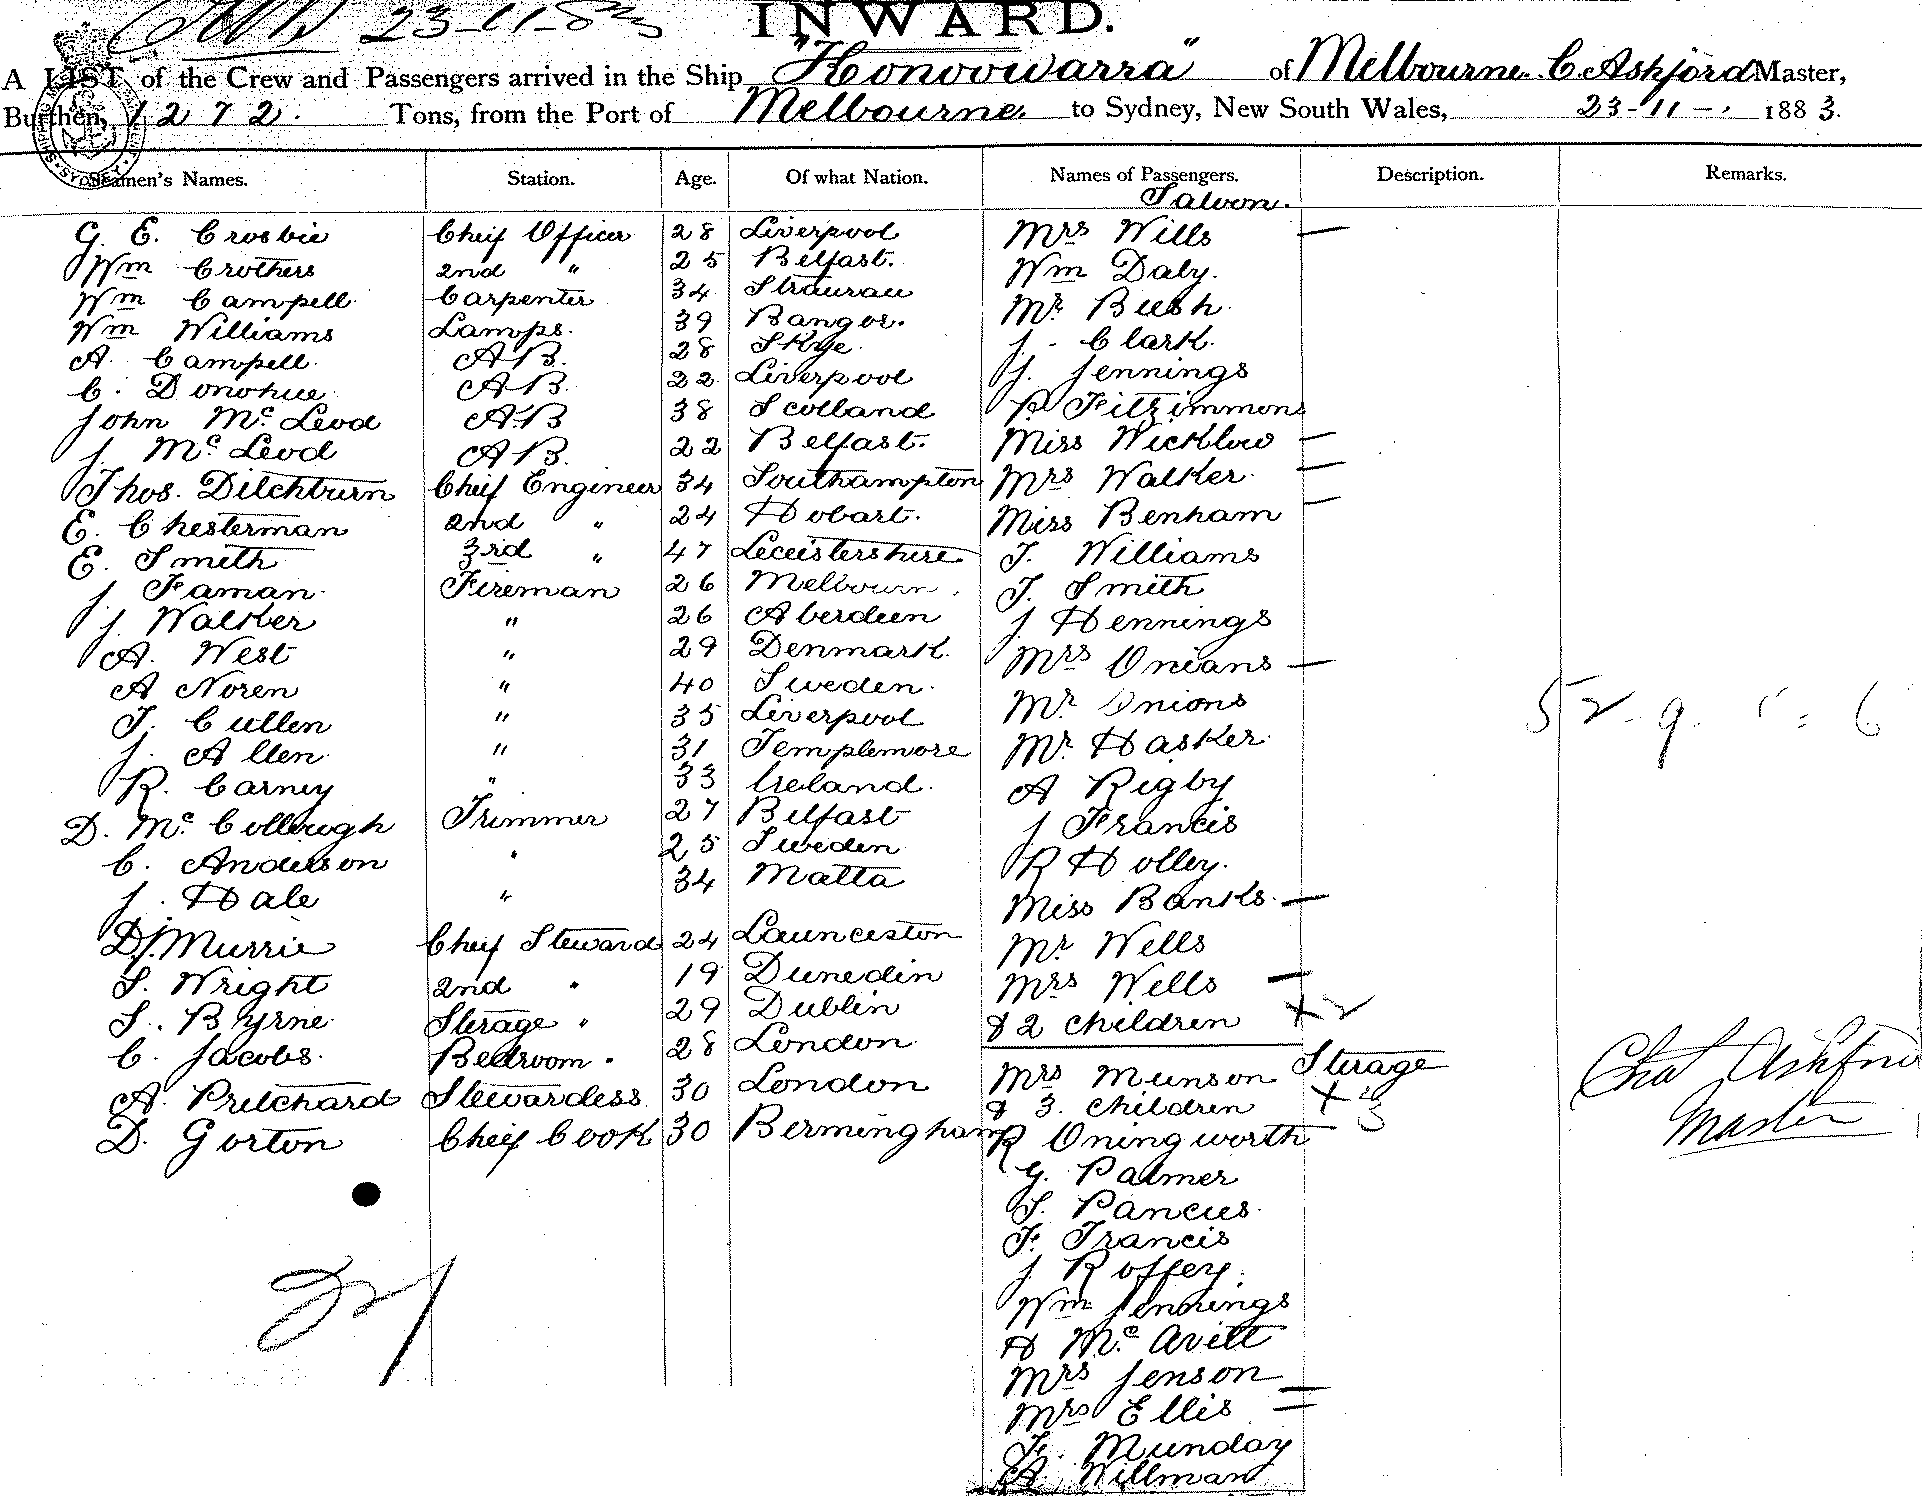 23-11-83
INWARD.
A LIST of the Crew and Passengers arrived in the Ship "Konoowarra" of Melbourne. C. Ashford Master,
Burthen, 1272. Tons, from the Port of Melbourne. to Sydney, New South Wales, 23-11- 1883.
Seamen's Names. Station. Age. Of what Nation. Names of Passengers. Description. Remarks.
Saloon.
G. E. Crosbie Cheif Officer 28 Liverpool Mrs Wills —
Wm Crothers 2nd " 25 Belfast. Wm Daly.
Wm Campell Carpenter 34 Straurau Mr Bush
Wm Williams Lamps. 39 Bangor. J. Clark.
A. Campell. AB. 28 Skye. J. Jennings
C. Donohue AB. 22 Liverpool P. Fitzimmons
John McLeod AB 38 Scotland Miss Wicklow —
J. McLeod AB. 22 Belfast. Mrs Walker. —
Thos. Ditchburn Cheif Engineer 34 Southampton Miss Benham —
E. Chesterman 2nd " 24 Hobart. T. Williams
E. Smith 3rd " 47 Leceistershire T. Smith
J. Faman. Fireman 26 Melbourn. J Hennings
J. Walker " 26 Aberdeen Mrs Onians —
A. West " 29 Denmark. Mr Onions
A Noren " 40 Sweden. Mr. Hasker.
T. Cullen " 35 Liverpool A Rigby
J. Allen. " 31 Templemore J Francis
R. Carney " 33 Ireland. R Holley.
D. McCollough Trimmer 27 Belfast Miss Banks. —
C. Anderson " 25 Sweden Mr Wells
J. Hale " 34 Malta Mrs Wells —
D. J. Murrie Cheif Steward 24 Launceston & 2 children + 2
S. Wright 2nd " 19 Dunedin Mrs Munson Sterage
S. Byrne. Sterage " 29 Dublin & 3. children + 3
C. Jacobs. Bedroom " 28 London R Oningworth
A. Pritchard Stewardess 30 London G. Palmer
D. Gorton Cheif Cook 30 Bermingham S. Pancus.
F. Francis
J Roffey.
Wm Jennings
H McAvitt
Mrs Jenson —
Mrs Ellis —
F. Munday
A. Willman
52 - 9.
6
Chas Ashford
Master